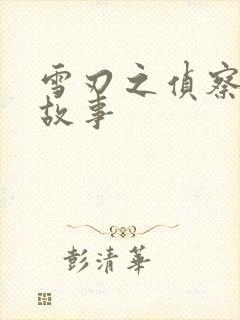 雪刃之偵察
故事
彭清華